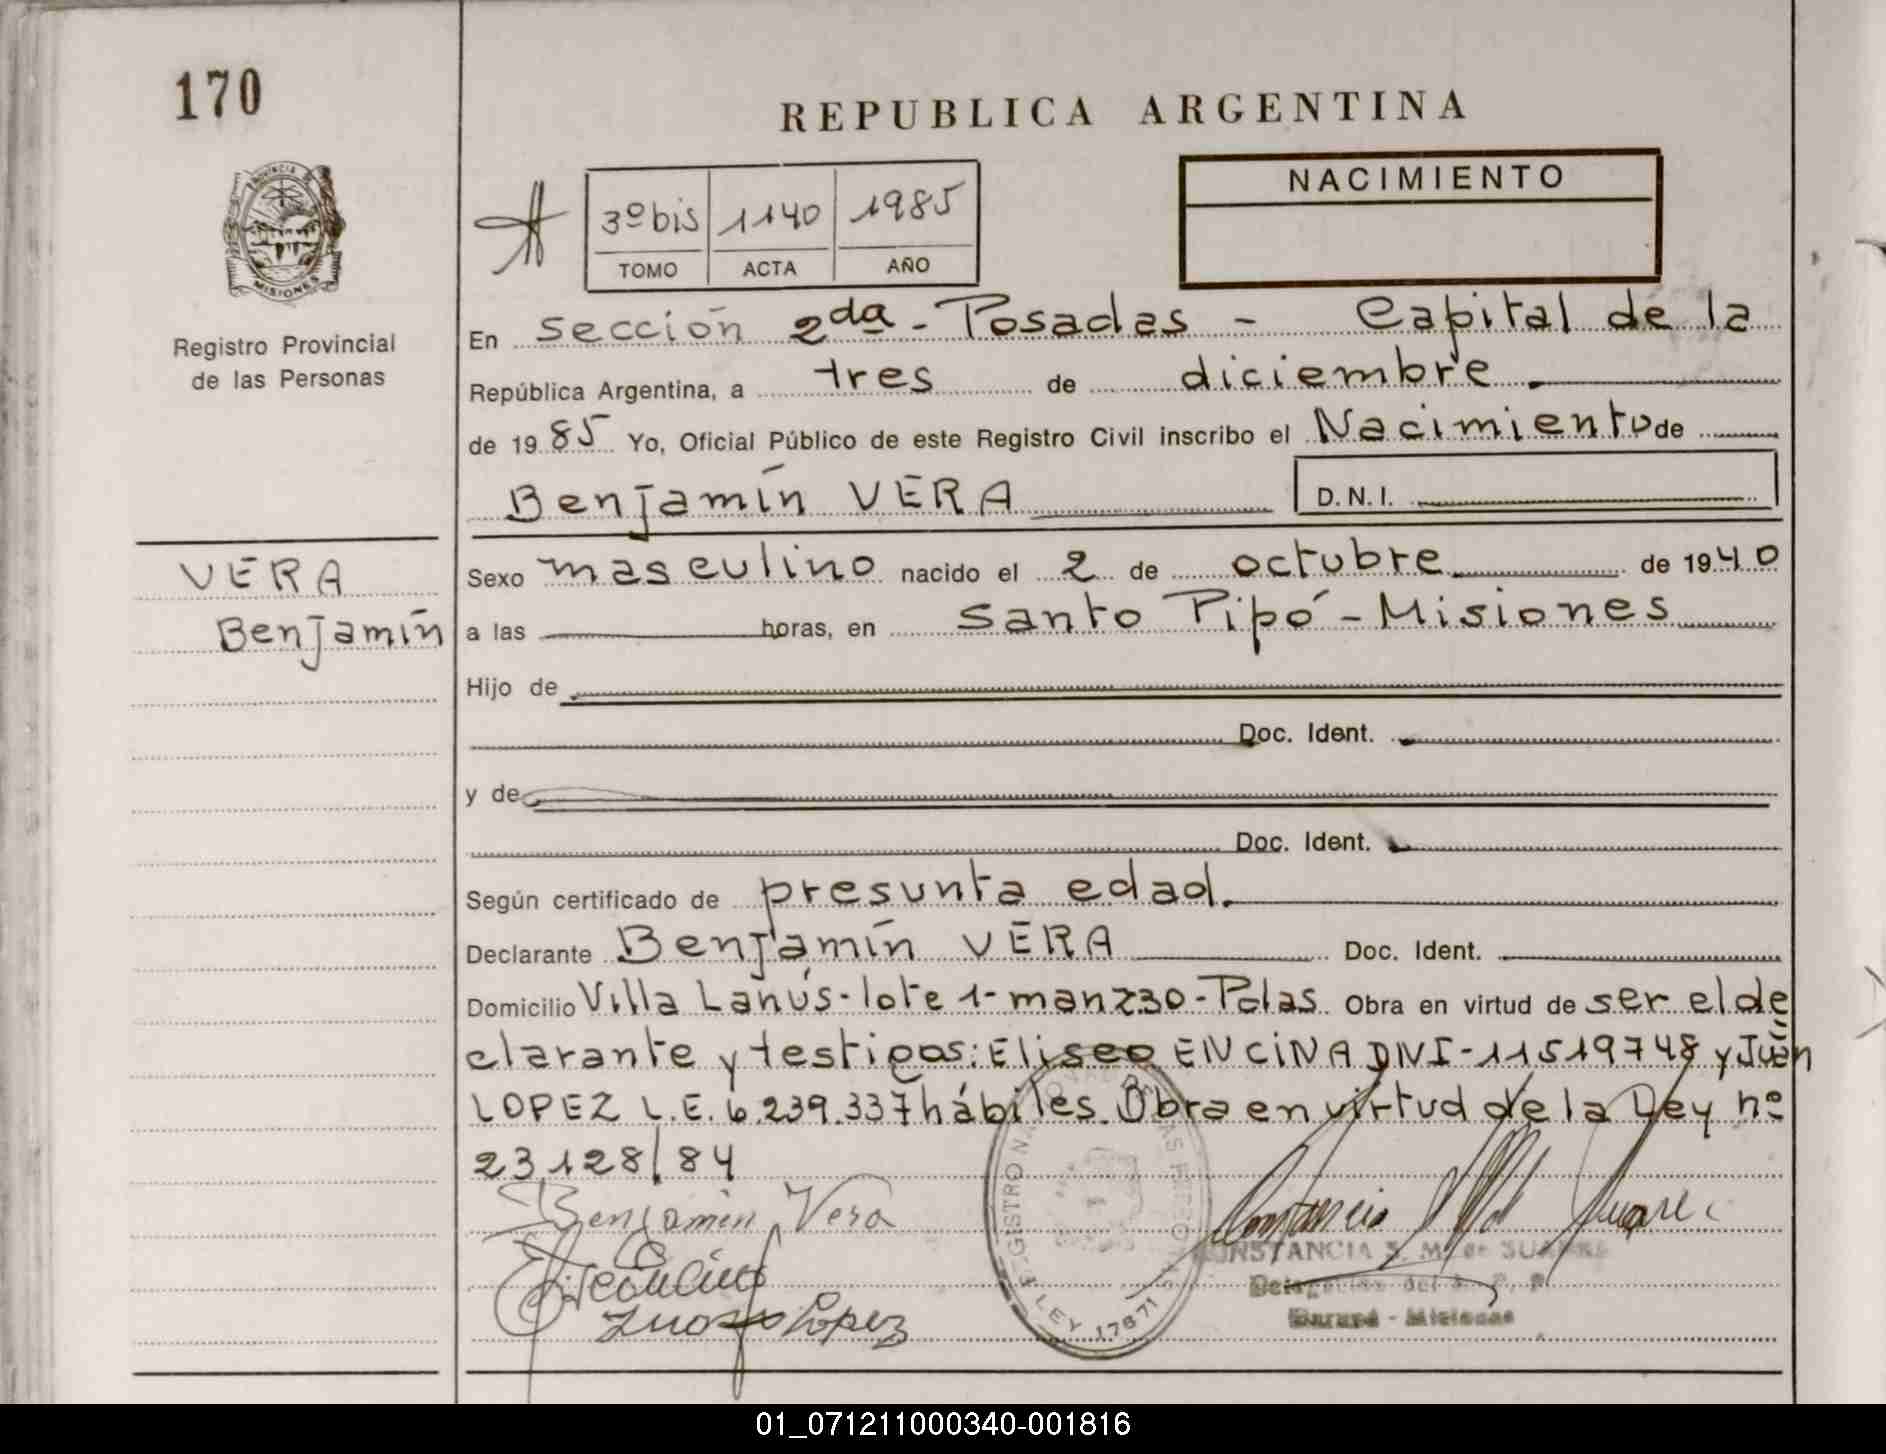 170
REPUBLICA ARGENTINA
NACIMIENTO
3º bis 1140 1985
TOMO ACTA AÑO
PROVINCIA DE
MISIONES
Registro Provincial
de las Personas
En Sección 2da - Posadas - Capital de la
República Argentina, a tres de diciembre
de 1985 Yo, Oficial Público de este Registro Civil inscribo el Nacimiento de
Benjamín VERA D.N.I.
VERA
Benjamín
Sexo masculino nacido el 2 de octubre de 1940
a las horas, en Santo Pipó - Misiones
Hijo de
Doc. Ident.
y de
Doc. Ident.
Según certificado de presunta edad.
Declarante Benjamín VERA Doc. Ident.
Domicilio Villa Lanús - lote 1 - manz 30 - Pdas. Obra en virtud de ser el de
clarante y testigos: Eliseo ENCINA DNI - 11519748 y Juan
LOPEZ L.E. 6.239.337 hábiles. Obra en virtud de la Ley nº
23128/84
Benjamin Vera
Lopez
REGISTRO NA
LEY 17671
CONSTANCIA S. M. de SUAREZ
Misiones
01_071211000340-001816